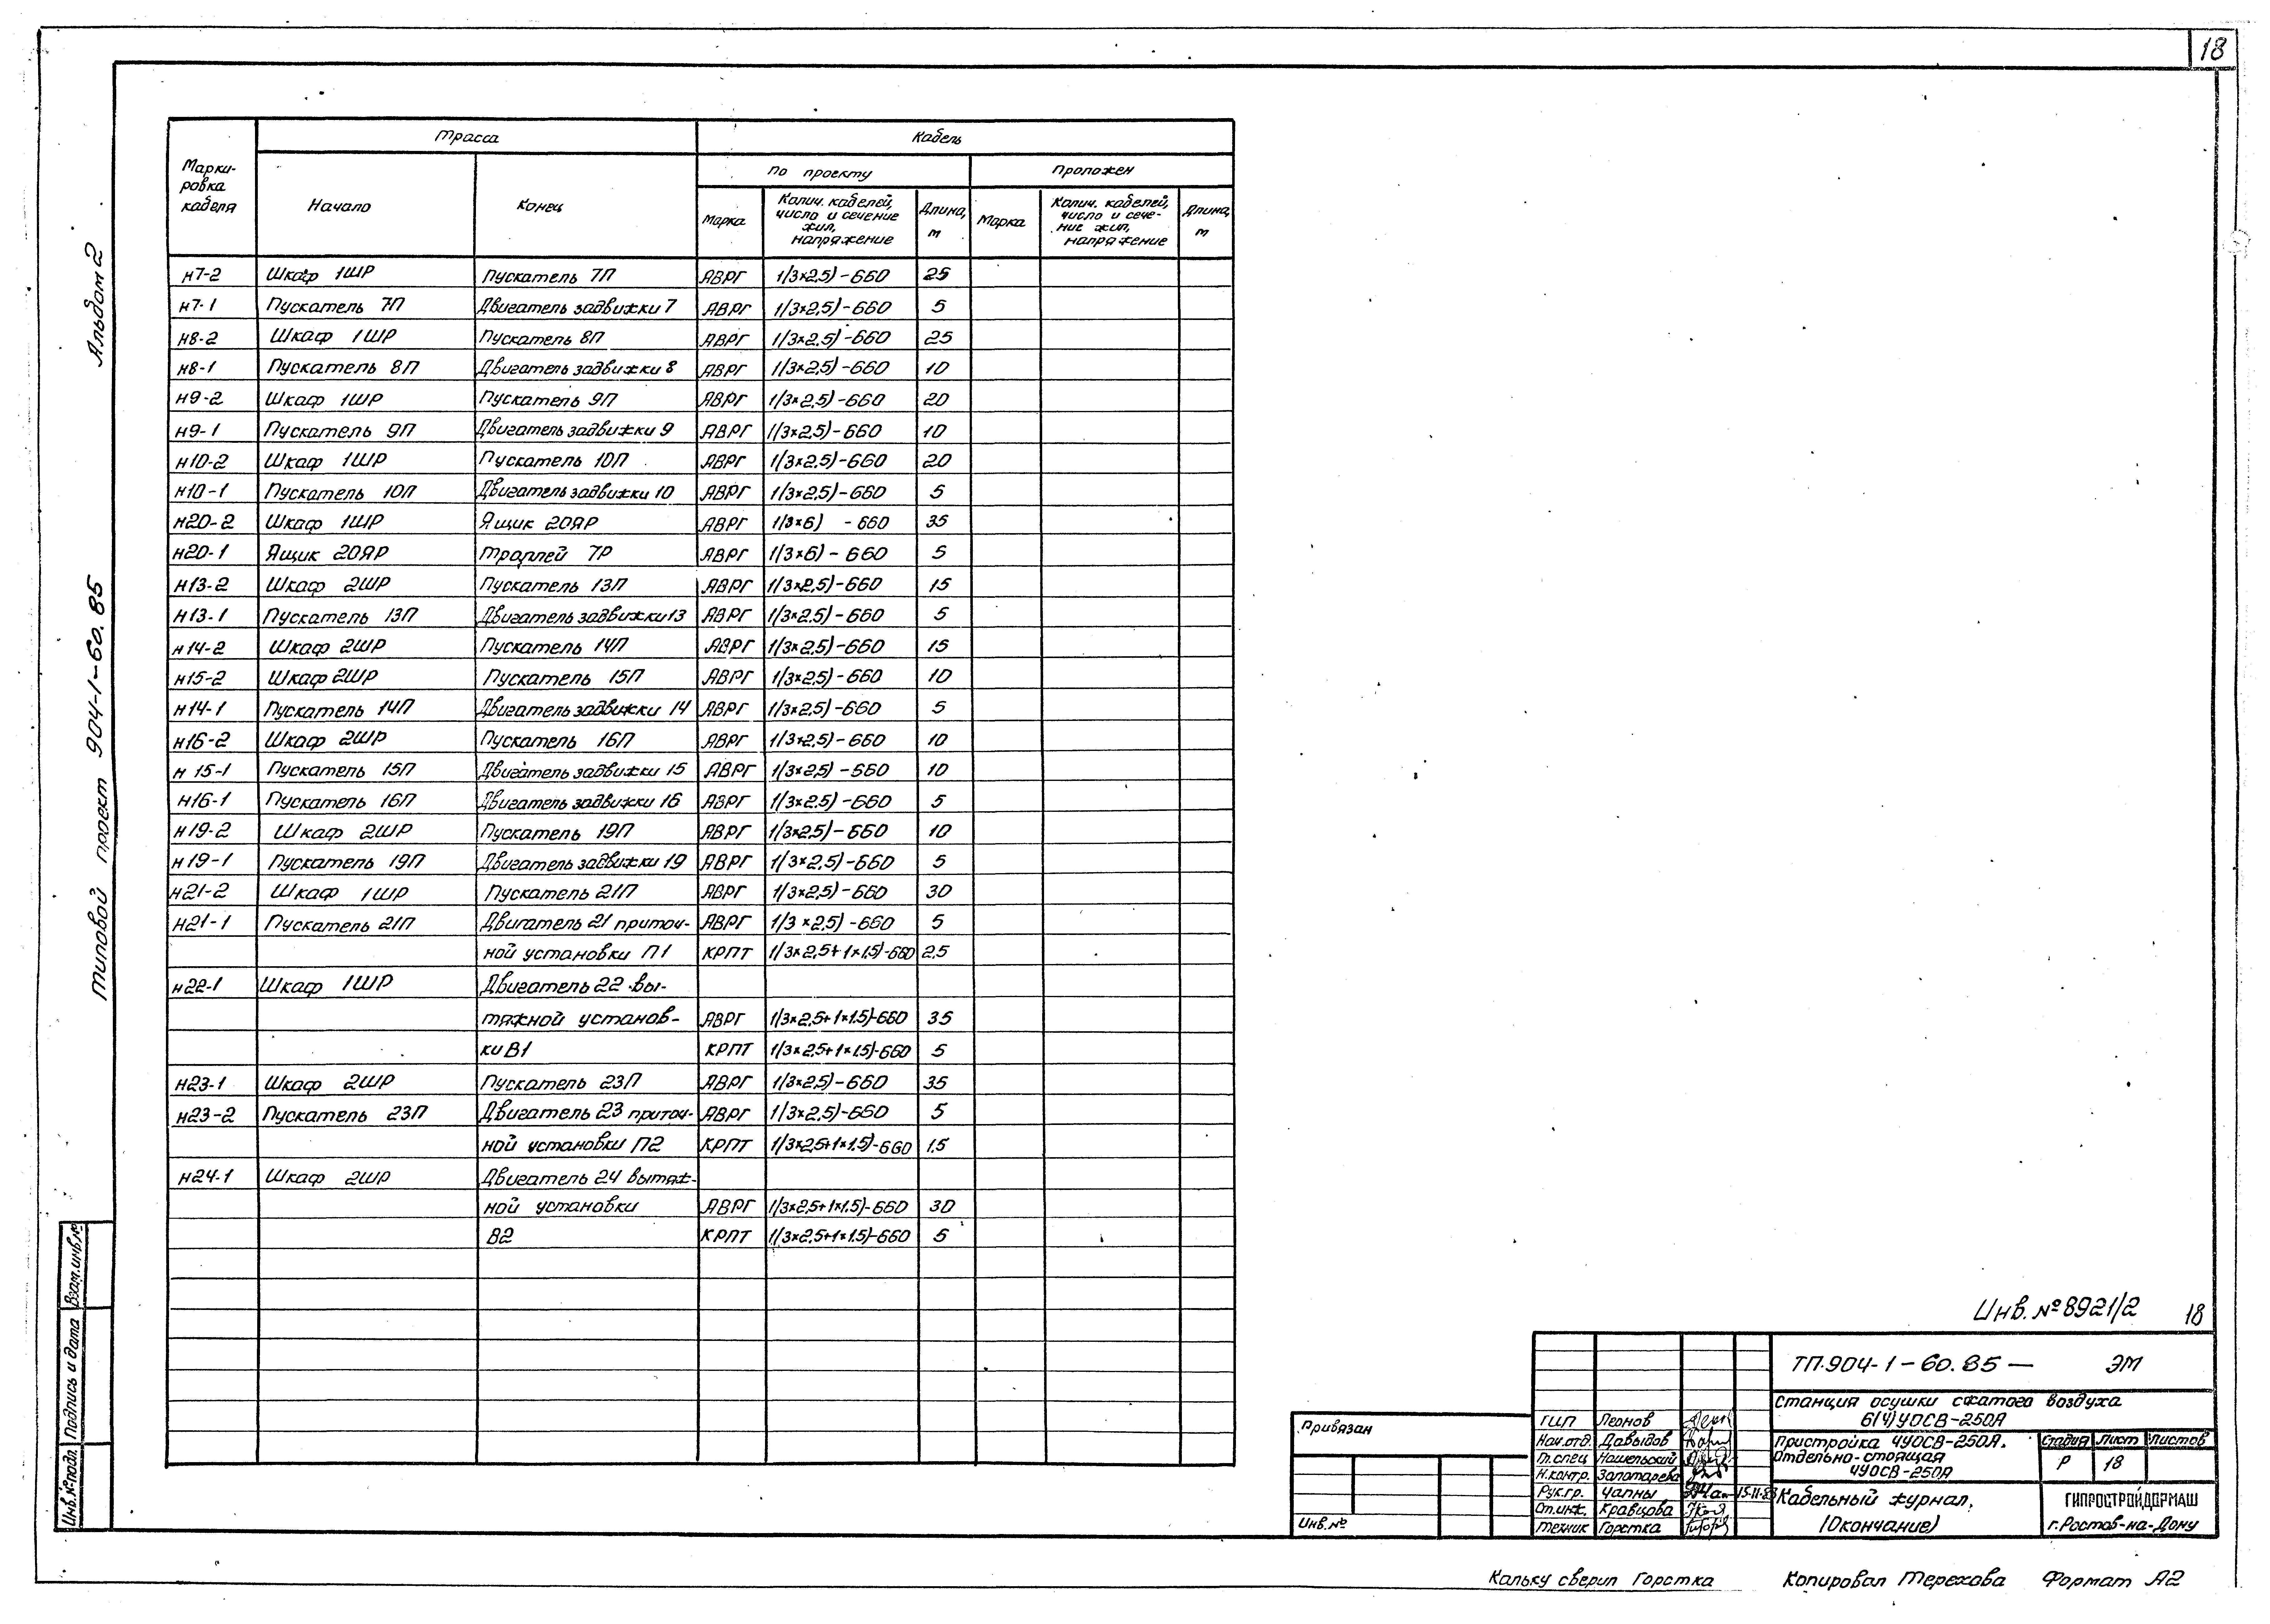 18
Альбом 2
Типовой проект 904-1-60.85
Марки-
ровка
кабеля
Трасса
Кабель
Начало
Конец
По проекту
Проложен
Марка
Колич. кабелей,
число и сечение
жил,
напряжение
Длина,
м
Марка
Колич. кабелей,
число и сече-
ние жил,
напряжение
Длина,
м
н7-2 Шкаф 1ШР Пускатель 7П АВРГ 1(3×2,5)-660 25
н7-1 Пускатель 7П Двигатель задвижки 7 АВРГ 1(3×2,5)-660 5
н8-2 Шкаф 1ШР Пускатель 8П АВРГ 1(3×2,5)-660 25
н8-1 Пускатель 8П Двигатель задвижки 8 АВРГ 1(3×2,5)-660 10
н9-2 Шкаф 1ШР Пускатель 9П АВРГ 1(3×2,5)-660 20
н9-1 Пускатель 9П Двигатель задвижки 9 АВРГ 1(3×2,5)-660 10
н10-2 Шкаф 1ШР Пускатель 10П АВРГ 1(3×2,5)-660 20
н10-1 Пускатель 10П Двигатель задвижки 10 АВРГ 1(3×2,5)-660 5
н20-2 Шкаф 1ШР Ящик 20ЯР АВРГ 1(3×6) -660 35
н20-1 Ящик 20ЯР Троллей 7Р АВРГ 1(3×6)-660 5
н13-2 Шкаф 2ШР Пускатель 13П АВРГ 1(3×2,5)-660 15
н13-1 Пускатель 13П Двигатель задвижки 13 АВРГ 1(3×2,5)-660 5
н14-2 Шкаф 2ШР Пускатель 14П АВРГ 1(3×2,5)-660 15
н15-2 Шкаф 2ШР Пускатель 15П АВРГ 1(3×2,5)-660 10
н14-1 Пускатель 14П Двигатель задвижки 14 АВРГ 1(3×2,5)-660 5
н16-2 Шкаф 2ШР Пускатель 16П АВРГ 1(3×2,5)-660 10
н15-1 Пускатель 15П Двигатель задвижки 15 АВРГ 1(3×2,5)-660 10
н16-1 Пускатель 16П Двигатель задвижки 16 АВРГ 1(3×2,5)-660 5
н19-2 Шкаф 2ШР Пускатель 19П АВРГ 1(3×2,5)-660 10
н19-1 Пускатель 19П Двигатель задвижки 19 АВРГ 1(3×2,5)-660 5
н21-2 Шкаф 1ШР Пускатель 21П АВРГ 1(3×2,5)-660 30
н21-1 Пускатель 21П Двигатель 21 приточ- АВРГ 1(3×2,5)-660 5
ной установки П1 КРПТ 1(3×2,5+1×1,5)-660 2,5
н22-1 Шкаф 1ШР Двигатель 22 вы-
тяжной установ- АВРГ 1(3×2,5+1×1.5)-660 35
ки В1 КРПТ 1(3×2,5+1×1,5)-660 5
н23-1 Шкаф 2ШР Пускатель 23П АВРГ 1(3×2,5)-660 35
н23-2 Пускатель 23П Двигатель 23 приточ- АВРГ 1(3×2,5)-660 5
ной установки П2 КРПТ 1(3×2,5+1×1.5)-660 1,5
н24-1 Шкаф 2ШР Двигатель 24 вытяж-
ной установки АВРГ 1(3×2,5+1×1,5)-660 30
В2 КРПТ 1(3×2,5+1×1.5)-660 5
Взам.инв.№
Подпись и дата
Инв.№подл.
Инв.№8921/2 18
ТП.904-1-60.85— ЭМ
Станция осушки сжатого воздуха
6(4)УОСВ-250А
Пристройка 4УОСВ-250А.
Отдельно-стоящая
4УОСВ-250А
Стадия Лист Листов
Р 18
Кабельный журнал.
(Окончание)
ГИПРОСТРОЙДОРМАШ
г.Ростов-на-Дону
ГИП Леонов
Нач.отд. Давыдов
Гл.спец Нашельский
Н.контр. Золотарева
Рук.гр. Чапны
Ст.инж. Кравцова
Техник Горстка
Привязан
Инв.№
Кальку сверил Горстка Копировал Терехова Формат А2